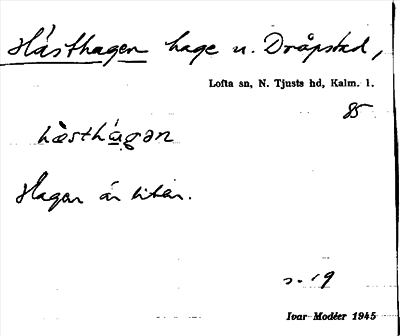 Hästhagen hage u. Dråpstad,
Lofta sn, N. Tjusts hd, Kalm. l.
85
hæ̀sthágən
Hagen är liten.
s. 19
Ivar Modéer 1945